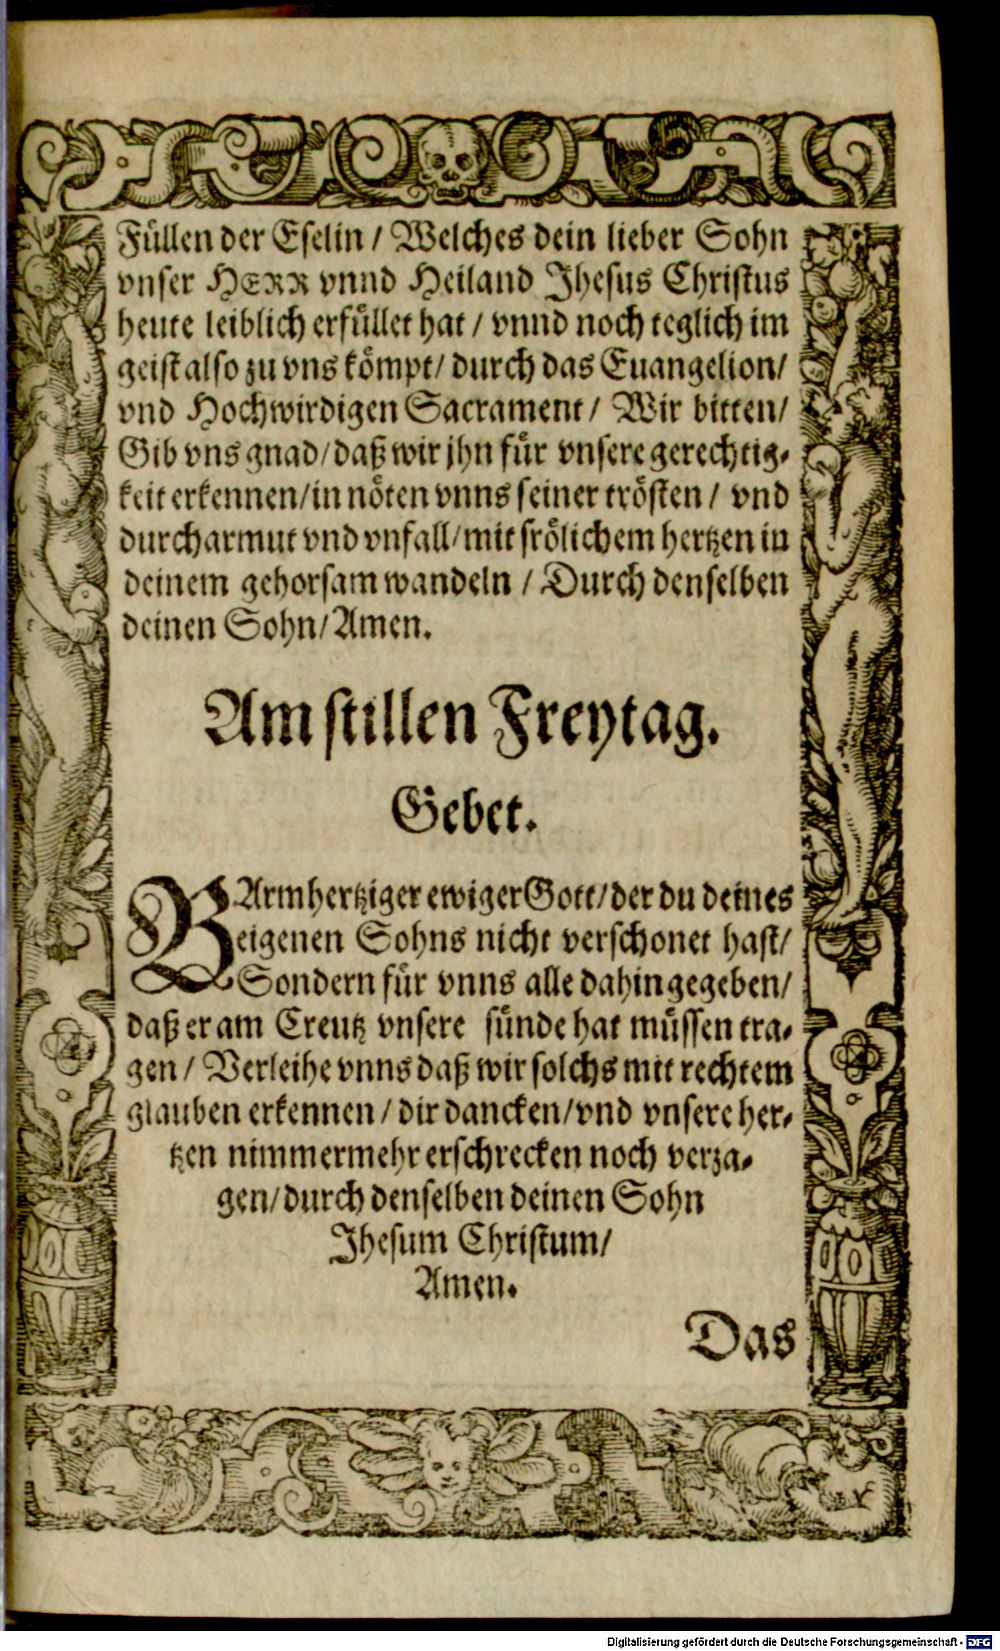 Füllen der Eselin / Welches dein lieber Sohn
vnser HERR vnnd Heiland Jhesus Christus
heute leiblich erfüllet hat / vnnd noch teglich im
geist also zu vns kömpt / durch das Euangelion /
vnd Hochwirdigen Sacrament / Wir bitten /
Gib vns gnad / daß wir jhn für vnsere gerechtig-
keit erkennen / in nöten vnns seiner trösten / vnd
durch armut vnd vnfall / mit frölichem hertzen in
deinem gehorsam wandeln / Durch denselben
deinen Sohn / Amen.
Am stillen Freytag.
Gebet.
BArmhertziger ewiger Gott / der du deines
eigenen Sohns nicht verschonet hast /
Sondern für vnns alle dahin gegeben /
daß er am Creutz vnsere sünde hat müssen tra-
gen / Verleihe vnns daß wir solchs mit rechtem
glauben erkennen / dir dancken / vnd vnsere her-
tzen nimmermehr erschrecken noch verza-
gen / durch denselben deinen Sohn
Jhesum Christum /
Amen.
Das
Digitalisierung gefördert durch die Deutsche Forschungsgemeinschaft - DFG